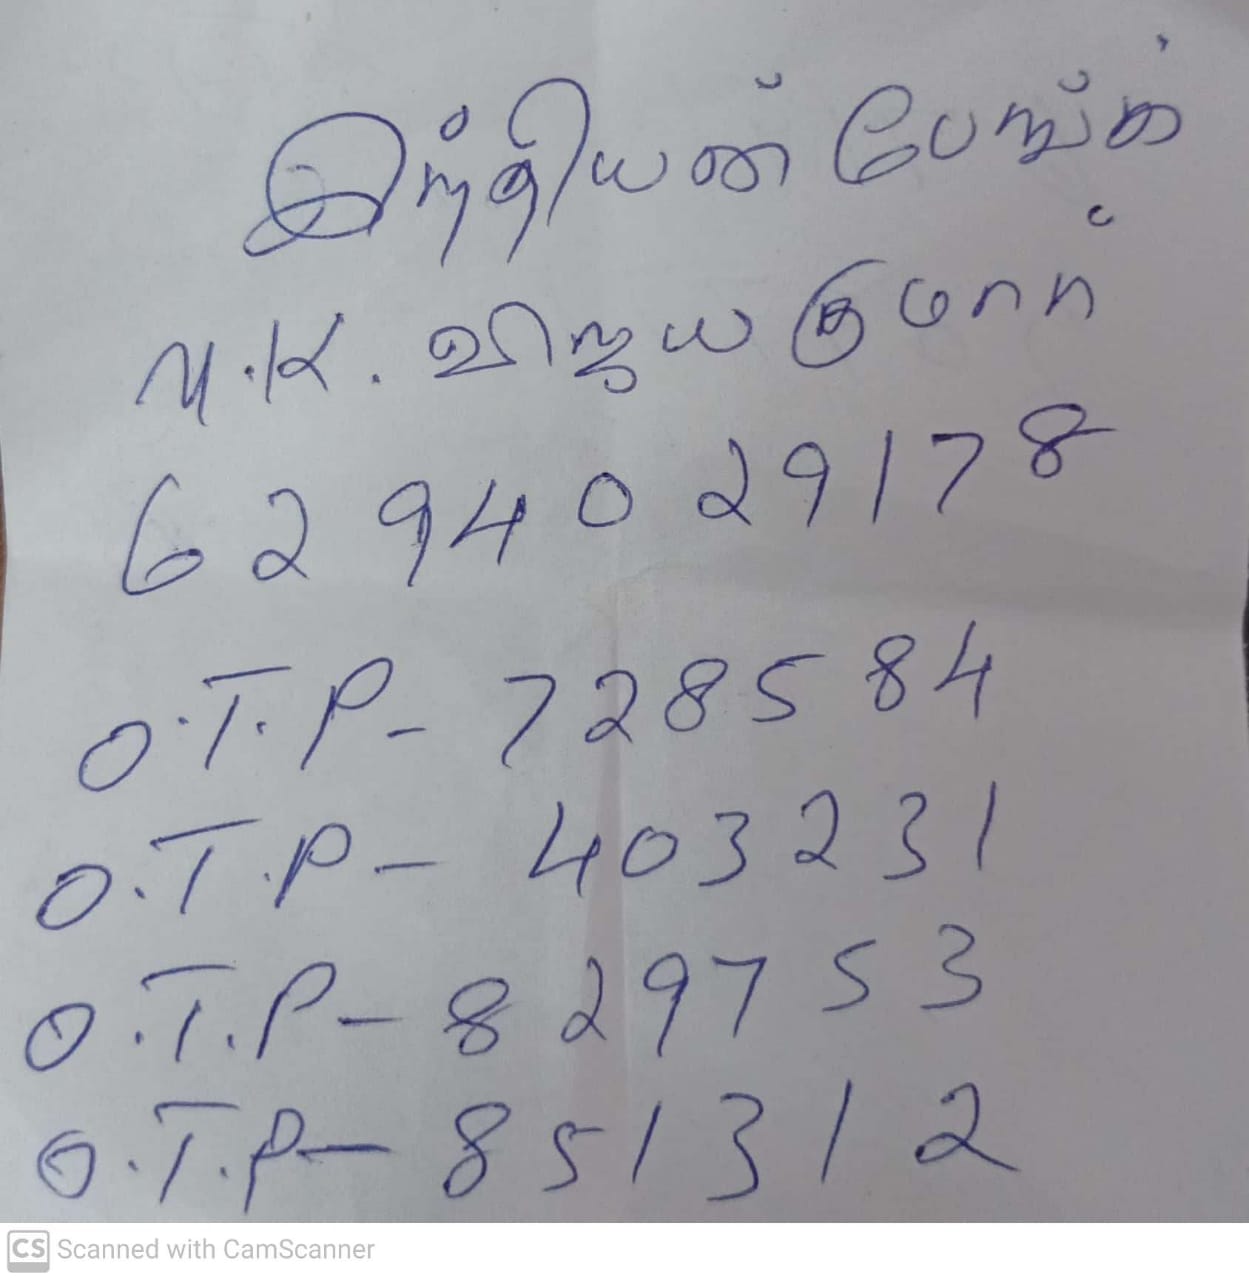 இந்தியன் பேங்க்
M.K. விஜயகுமார்
6294029178
O.T.P- 728584
O.T.P- 403231
O.T.P- 829753
O.T.P- 851312
CS Scanned with CamScanner